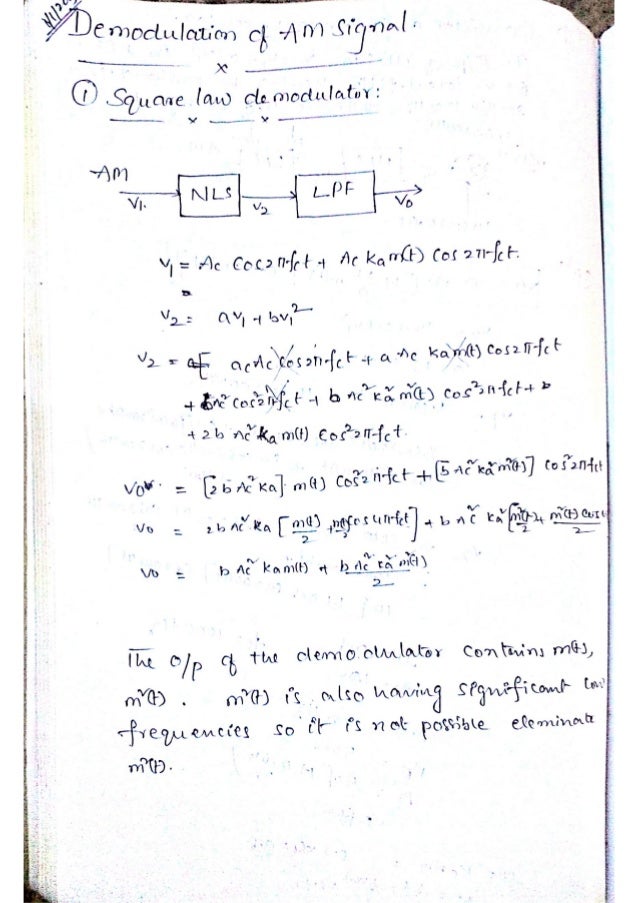 Demodulation of AM Signal.
① Square law demodulator:
AM
V1. NLS V2 LPF V0
v1 = Ac Cos2πfct + Ac Ka m(t) cos 2πfct.
V2 = av1 + bv1²
V2 = a Ac Cos2πfct + a Ac Ka m(t) Cos2πfct
+ b Ac² Cos²2πfct + b Ac² Ka² m²(t) Cos²2πfct + b
+ 2b Ac² Ka m(t) Cos²2πfct.
Vo = [2b Ac² Ka] m(t) Cos²2πfct + [b Ac² Ka² m²(t)] Cos²2πfct
Vo = 2b Ac² Ka [m(t)/2 + m(t) Cos 4πfct] + b Ac² Ka² [m²(t)/2 + m²(t) Cos /2
Vo = b Ac² Ka m(t) + b Ac² Ka² m²(t)/2
The o/p of the demodulator contains m(t),
m²(t). m²(t) is also having significant
frequencies so it is not possible eleminate
m²(t).